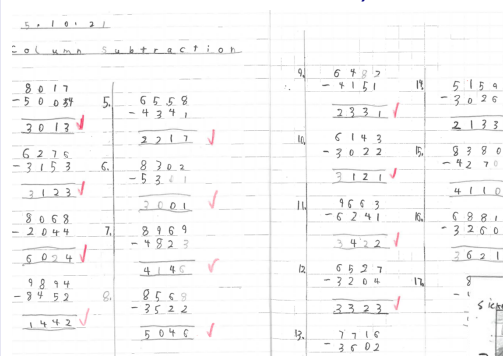 5.10.21
Column Subtraction
8017
- 5004
3013
6276
- 3153
3123
8068
- 2044
6024
9894
- 8452
1442
5. 6558
- 4341
2217
6. 8302
- 53
3001
7. 8969
- 4823
4146
8. 8568
- 3522
5046
9. 6483
- 4151
2331
10. 6143
- 3022
3121
11. 9663
- 6241
3422
12. 6527
- 3204
3323
13. 7716
- 3602
14. 5159
- 3026
2133
15. 8380
- 4270
4110
16. 6881
- 3260
3621
17. 8